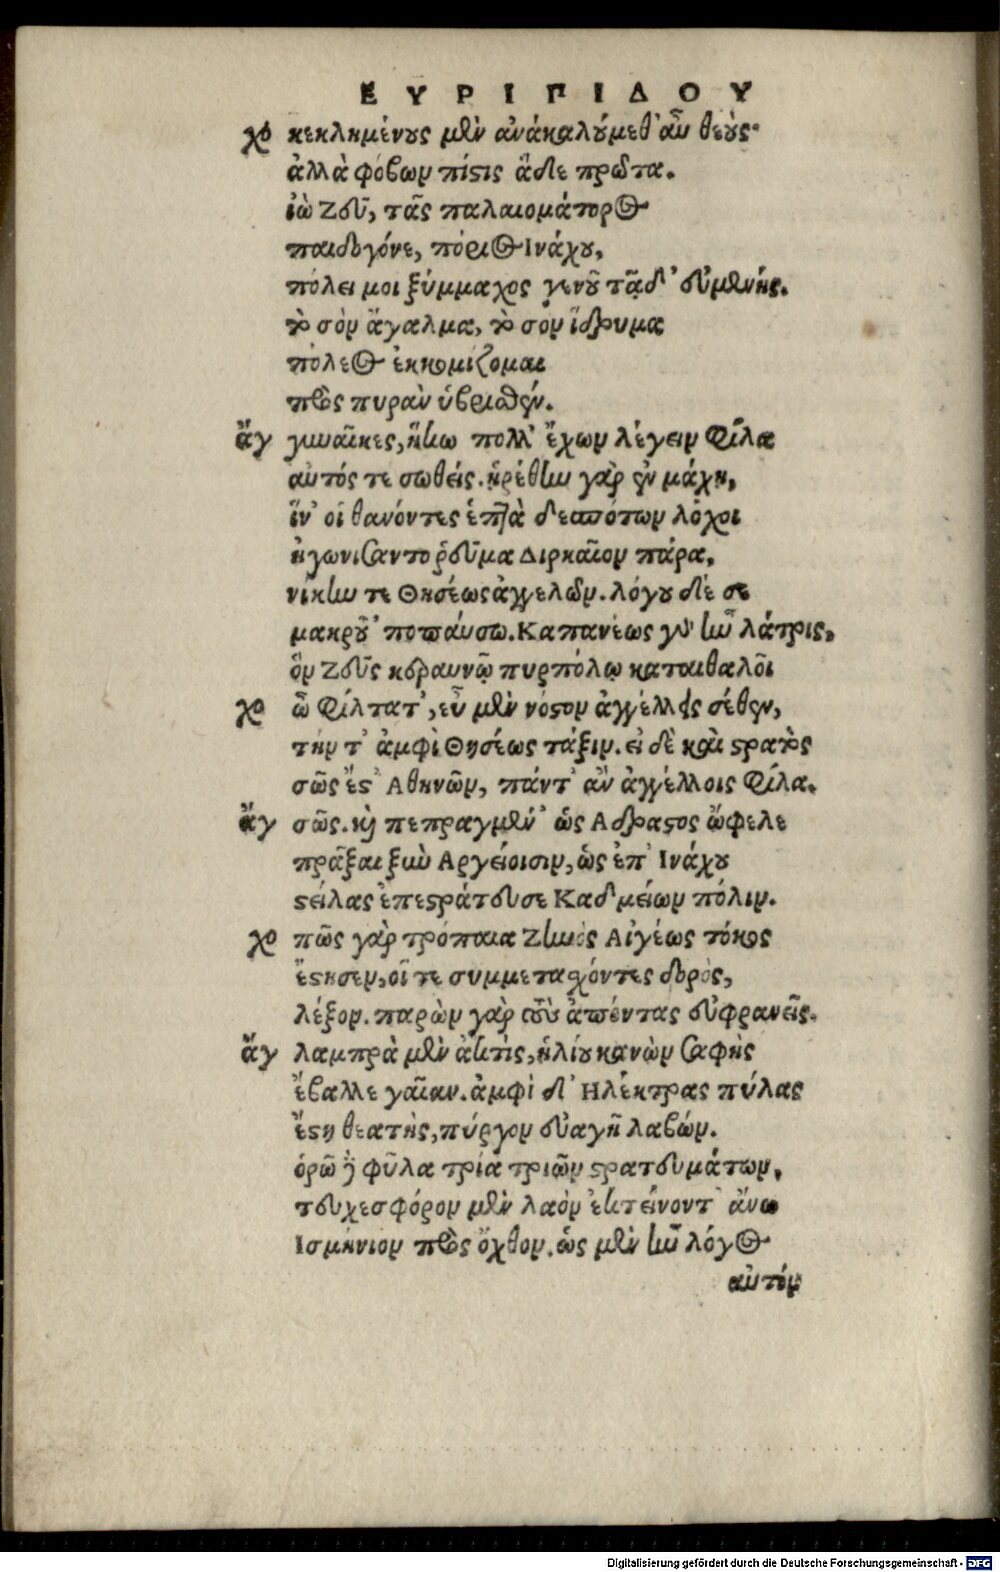 ΕΥΡΙΠΙΔΟΥ
χο κεκλημένους μὲν ἀνακαλούμεθ' αὖ θεούς·
ἀλλὰ φόβων πίστις ἅδε πρῶτα.
ἰὼ Ζεῦ, τᾶς παλαιομάτορος
παιδογόνε, πόριος Ινάχου,
πόλει μοι ξύμμαχος γενοῦ τᾷδ' εὐμενής.
τὸ σὸν ἄγαλμα, τὸ σὸν ἵδρυμα
πόλεος ἐκκομίζομαι
πρὸς πυρὰν ὑβρισθέν.
ἄγ γυναῖκες, ἥκω πολλ' ἔχων λέγειν φίλα
αὐτός τε σωθείς. ᾑρέθην γὰρ ἐν μάχῃ,
ἵν' οἱ θανόντες ἑπτὰ δεσπότων λόχοι
ἠγωνίσαντο ῥεῦμα Διρκαῖον πάρα,
νίκην τε Θησέως ἀγγελῶν. λόγου δέ σε
μακροῦ 'ποπαύσω. Καπανέως γὰρ ἦν λάτρις,
ὃν Ζεῦς κεραυνῷ πυρπόλῳ καταιθαλοῖ
χο ὦ φίλτατ', εὖ μὲν νόστον ἀγγέλλεις σέθεν,
τήν τ' ἀμφὶ Θησέως τάξιν. εἰ δὲ καὶ στρατὸς
σῶς ἔστ' Αθηνῶν, πάντ' ἂν ἀγγέλλοις φίλα.
ἄγ σῶς. καὶ πεπραγμέν' ὡς Αδραστος ὤφελε
πρᾶξαι ξὺν Αργείοισιν, ὡς ἐπ' Ινάχου
στείλας ἐπεστράτευσε Καδμείων πόλιν.
χο πῶς γὰρ τρόπαια Ζηνὸς Αἰγέως τόκος
ἔστησεν, οἵ τε συμμετασχόντες δορὸς,
λέξον. παρὼν γὰρ τοὺς ἀπόντας εὐφρανεῖς.
ἄγ λαμπρὰ μὲν ἀκτὶς, ἡλίου κανὼν σαφὴς
ἔβαλλε γαῖαν. ἀμφὶ δ' Ηλέκτρας πύλας
ἔστην θεατὴς, πύργον εὐαγῆ λαβών.
ὁρῶ δὲ φῦλα τρία τριῶν στρατευμάτων,
τευχεσφόρον μὲν λαὸν ἐκτείνοντ' ἄνω
Ισμήνιον πρὸς ὄχθον. ὡς μὲν ἦν λόγος
αὐτόν
Digitalisierung gefördert durch die Deutsche Forschungsgemeinschaft - DFG